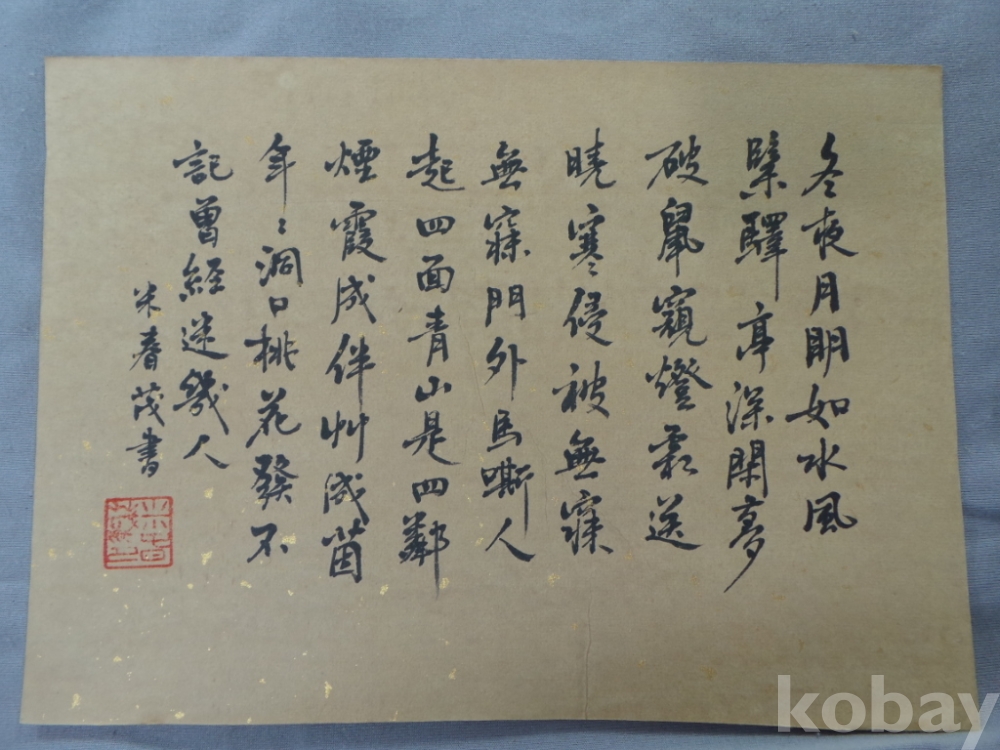 冬夜月明如水風
緊驛亭深閉夢
破鼠窺燈霜送
曉寒侵被無寐
無寐門外馬嘶人
起四面青山是四鄰
煙霞成伴艸成茵
年々洞口桃花發不
記曾經迷幾人
米春茂書
kobay